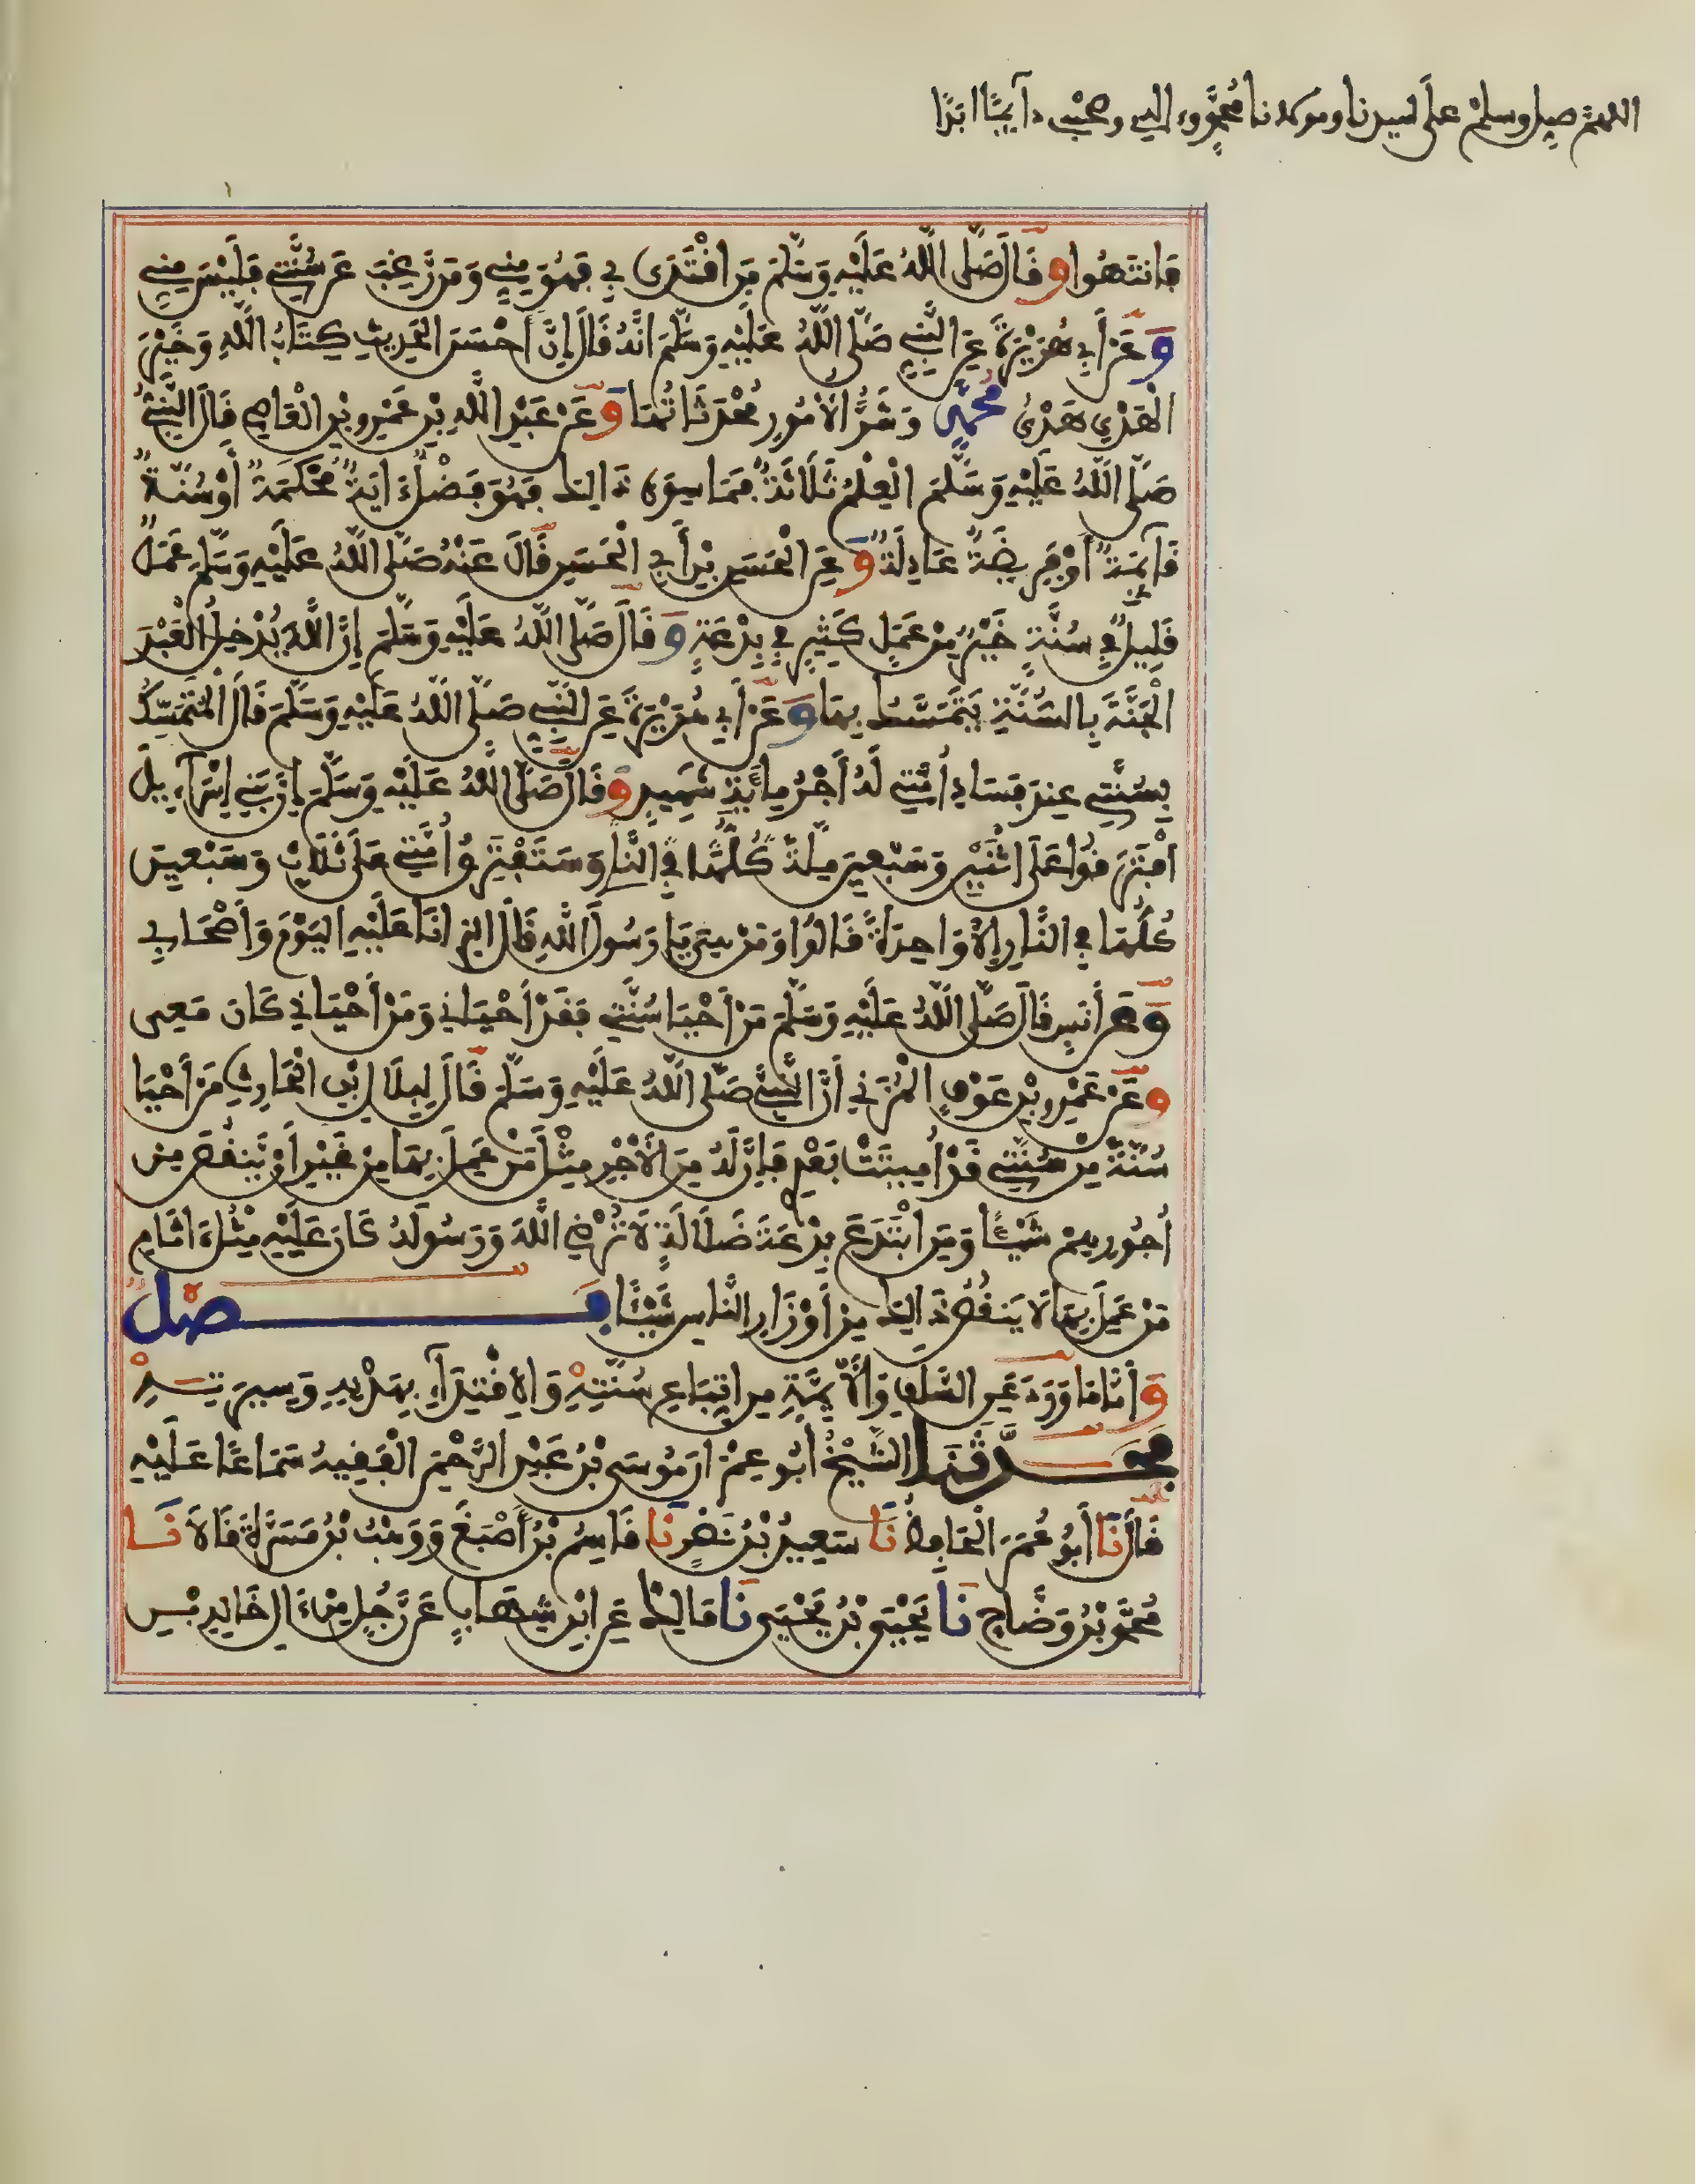 اللهم صل وسلم على سيدنا ومولانا محمد وءاله وصحبه دآيما ابدا
فَانتَهُوا وقَالَ صَلَّى اللَّهُ عَلَيْهِ وَسَلَّمَ مَنِ اقْتَدَى بِي فَهُوَ مِنِّي وَمَن رَّغِبَ عَن سُنَّتِي فَلَيْسَ مِنِّي
وَعَنْ أَبِي هُرَيْرَةَ عَنِ النَّبِيِّ صَلَّى اللَّهُ عَلَيْهِ وَسَلَّمَ أَنَّهُ قَالَ إِنَّ أَحْسَنَ الْحَدِيثِ كِتَابُ اللَّهِ وَخَيْرَ
الْهَدْيِ هَدْيُ مُحَمَّدٍ وَشَرُّ الْأُمُورِ مُحْدَثَاتُهَا وَعَنْ عَبْدِ اللَّهِ بْنِ عَمْرِو بْنِ الْعَاصِي قَالَ النَّبِيُّ
صَلَّى اللَّهُ عَلَيْهِ وَسَلَّمَ الْعِلْمُ ثَلَاثَةٌ فَمَا سِوَى ذَالِكَ فَهُوَ فَضْلٌ ءَايَةٌ مُحْكَمَةٌ أَوْ سُنَّةٌ
قَآئِمَةٌ أَوْ فَرِيضَةٌ عَادِلَةٌ وَعَنِ الْحَسَنِ بْنِ أَبِي الْحَسَنِ قَالَ عَنْهُ صَلَّى اللَّهُ عَلَيْهِ وَسَلَّمَ عَمَلٌ
قَلِيلٌ فِي سُنَّةٍ خَيْرٌ مِنْ عَمَلٍ كَثِيرٍ فِي بِدْعَةٍ وَقَالَ صَلَّى اللَّهُ عَلَيْهِ وَسَلَّمَ إِنَّ اللَّهَ يُدْخِلُ الْعَبْدَ
الْجَنَّةَ بِالسُّنَّةِ يَتَمَسَّكُ بِهَا وَعَنْ أَبِي هُرَيْرَةَ عَنِ النَّبِيِّ صَلَّى اللَّهُ عَلَيْهِ وَسَلَّمَ قَالَ الْمُتَمَسِّكُ
بِسُنَّتِي عِندَ فَسَادِ أُمَّتِي لَهُ أَجْرُ مِائَةِ شَهِيدٍ وقَالَ صَلَّى اللَّهُ عَلَيْهِ وَسَلَّمَ إِنَّ بَنِي إِسْرَآءِيلَ
افْتَرَقُوا عَلَى اثْنَيْنِ وَسَبْعِينَ مِلَّةً كُلُّهَا فِي النَّارِ وَسَتَفْتَرِقُ أُمَّتِي عَلَى ثَلَاثٍ وَسَبْعِينَ
كُلُّهَا فِي النَّارِ إِلَّا وَاحِدَةً قَالُوا وَمَنْ هِيَ يَا رَسُولَ اللَّهِ قَالَ الذِي أَنَا عَلَيْهِ الْيَوْمَ وَأَصْحَابِي
وَعَنْ أَنَسٍ قَالَ صَلَّى اللَّهُ عَلَيْهِ وَسَلَّمَ مَنْ أَحْيَا سُنَّتِي فَقَدْ أَحْيَانِي وَمَنْ أَحْيَانِي كَانَ مَعِي
وَعَنْ عَمْرِو بْنِ عَوْفٍ الْمُزَنِي أَنَّ النَّبِيَّ صَلَّى اللَّهُ عَلَيْهِ وَسَلَّمَ قَالَ لِبِلَالِ ابْنِ الْحَارِثِ مَنْ أَحْيَا
سُنَّةً مِن سُنَّتِي قَدْ أُمِيتَتْ بَعْدِي فَإِنَّ لَهُ مِنَ الْأَجْرِ مِثْلَ مَنْ عَمِلَ بِهَا مِنْ غَيْرِ أَن يَّنقُصَ مِنْ
أُجُورِهِمْ شَيْئًا وَمَنِ ابْتَدَعَ بِدْعَةَ ضَلَالَةٍ لَا تُرْضِي اللَّهَ وَرَسُولَهُ كَانَ عَلَيْهِ مِثْلُ ءَاثَامِ
مَنْ عَمِلَ بِهَا لَا يَنقُصُ ذَالِكَ مِنْ أَوْزَارِ النَّاسِ شَيْئًا فَصْلٌ
وَأَمَّا مَا وَرَدَ عَنِ السَّلَفِ وَالْأَئِمَّةِ مِنِ اتِّبَاعِ سُنَّتِهِ وَالِاقْتِدَآءِ بِهَدْيِهِ وَسِيرَتِهِ
فَحَدَّثَنَا الشَّيْخُ أَبُو عِمْرَانَ مُوسَى بْنُ عَبْدِ الرَّحْمَنِ الْفَقِيهُ سَمَاعًا عَلَيْهِ
قَالَ نَا أَبُو عُمَرَ الْحَافِظُ نَا سَعِيدُ بْنُ نَصْرٍ نَا قَاسِمُ بْنُ أَصْبَغَ وَوَهْبُ بْنُ مَسَرَّةَ قَالَا نَا
مُحَمَّدُ بْنُ وَضَّاحٍ نَا يَحْيَى بْنُ يَحْيَى نَا مَالِكٌ عَنِ ابْنِ شِهَابٍ عَن رَّجُلٍ مِنْ ءَالِ خَالِدِ بْنِ